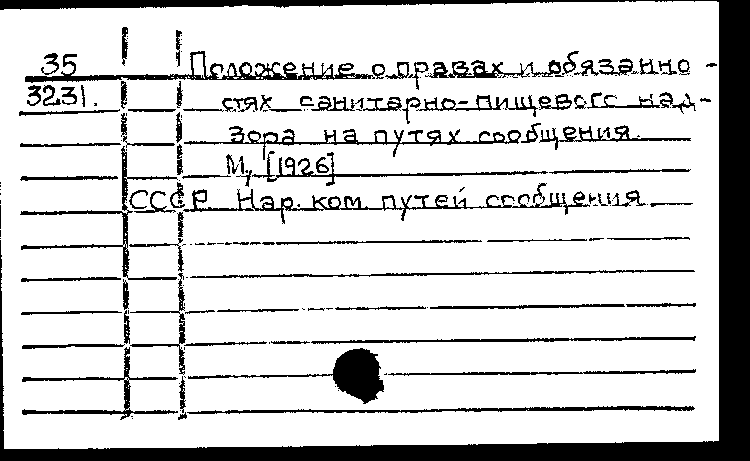 35 Положение о правах и обязанно-
3231. стях санитарно-пищевого над-
зора на путях сообщения.
М, [1926]
СССР. Нар. ком. путей сообщения.